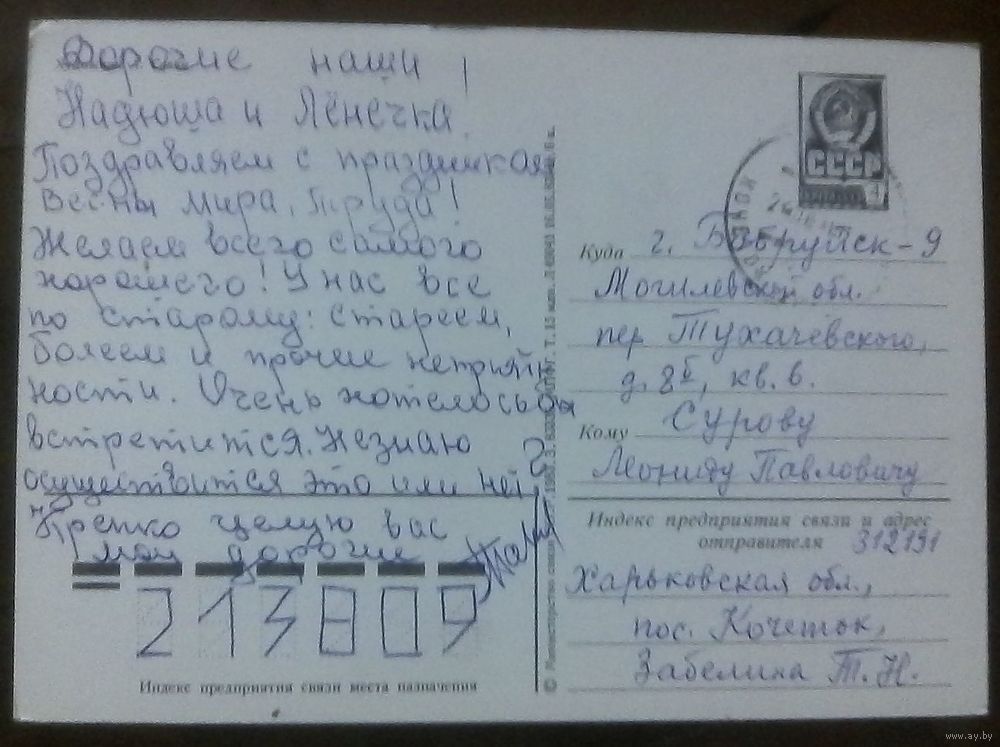 Дорогие наши
Надюша и Лёнечка!
Поздравляем с праздником
Весны мира, Труда!
Желаем всего самого
хорошего! У нас все
по старому: стареем,
болеем и прочие неприят
ности. Очень хотелось бы
встретится. Незнаю
осуществится это или нет?
Крепко целую вас
мои дорогие
213809
Индекс предприятия связи места назначения
© Министерство связи
СССР
Куда г. Бобруйск-9
Могилевской обл.
пер Тухачевского,
д. 8Б, кв. 6.
Кому Сурову
Леониду Павловичу
Индекс предприятия связи и адрес
отправителя 312191
Харьковская обл.,
пос. Кочеток,
Забелина Т.Н.
www.ay.by